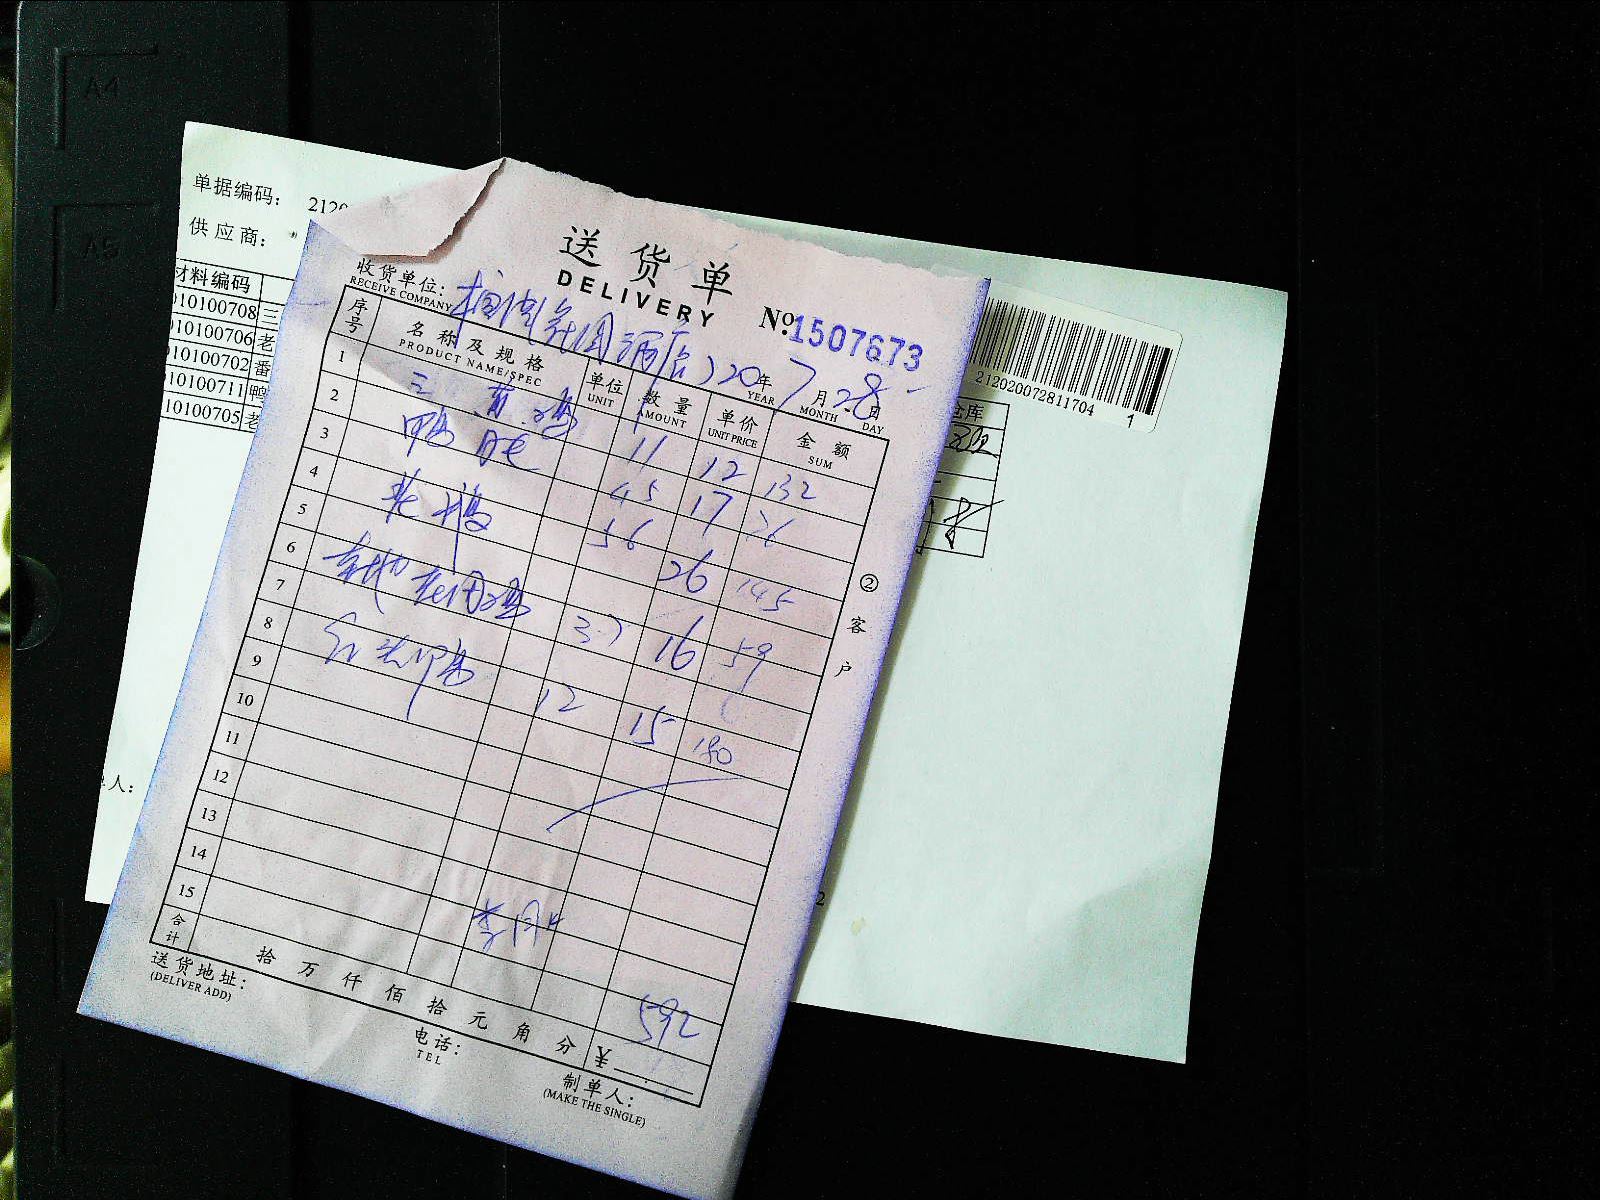 A4
A5
单据编码: 2120
供应商:
材料编码
10100708 三
10100706 老
10100702 番
10100711 鸭
10100705 老
仓库
212020072811704
1
单人:
2
送货单
DELIVERY
№ 1507673
收货单位:
RECEIVE COMPANY
酒店) 20年 7月28日
YEAR MONTH DAY
序号 名称及规格 单位 数量 单价 金额
PRODUCT NAME/SPEC UNIT AMOUNT UNIT PRICE SUM
1 三黄鸡 11 12 132
2 鸭 45 17 76
3 老鸡 56 26 145
4 老 鸡 3.7 16 59
5 头鸭 12 15 180
6
7
8
9
10
11
12
13
14
15
592
合计 拾万仟佰拾元角分 ¥
②客户
送货地址:
(DELIVER ADD)
电话:
TEL
制单人:
(MAKE THE SINGLE)